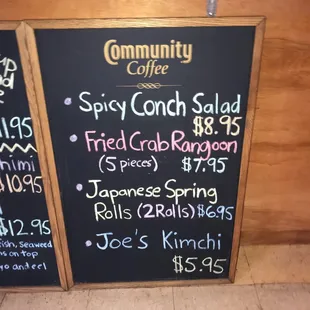 Community
Coffee
Spicy Conch Salad
$8.95
Fried Crab Rangoon
(5 pieces) $7.95
Japanese Spring
Rolls (2Rolls) $6.95
Joe's Kimchi
$5.95
11.95
himi
$10.95
$12.95
fish, seaweed
on top
and eel